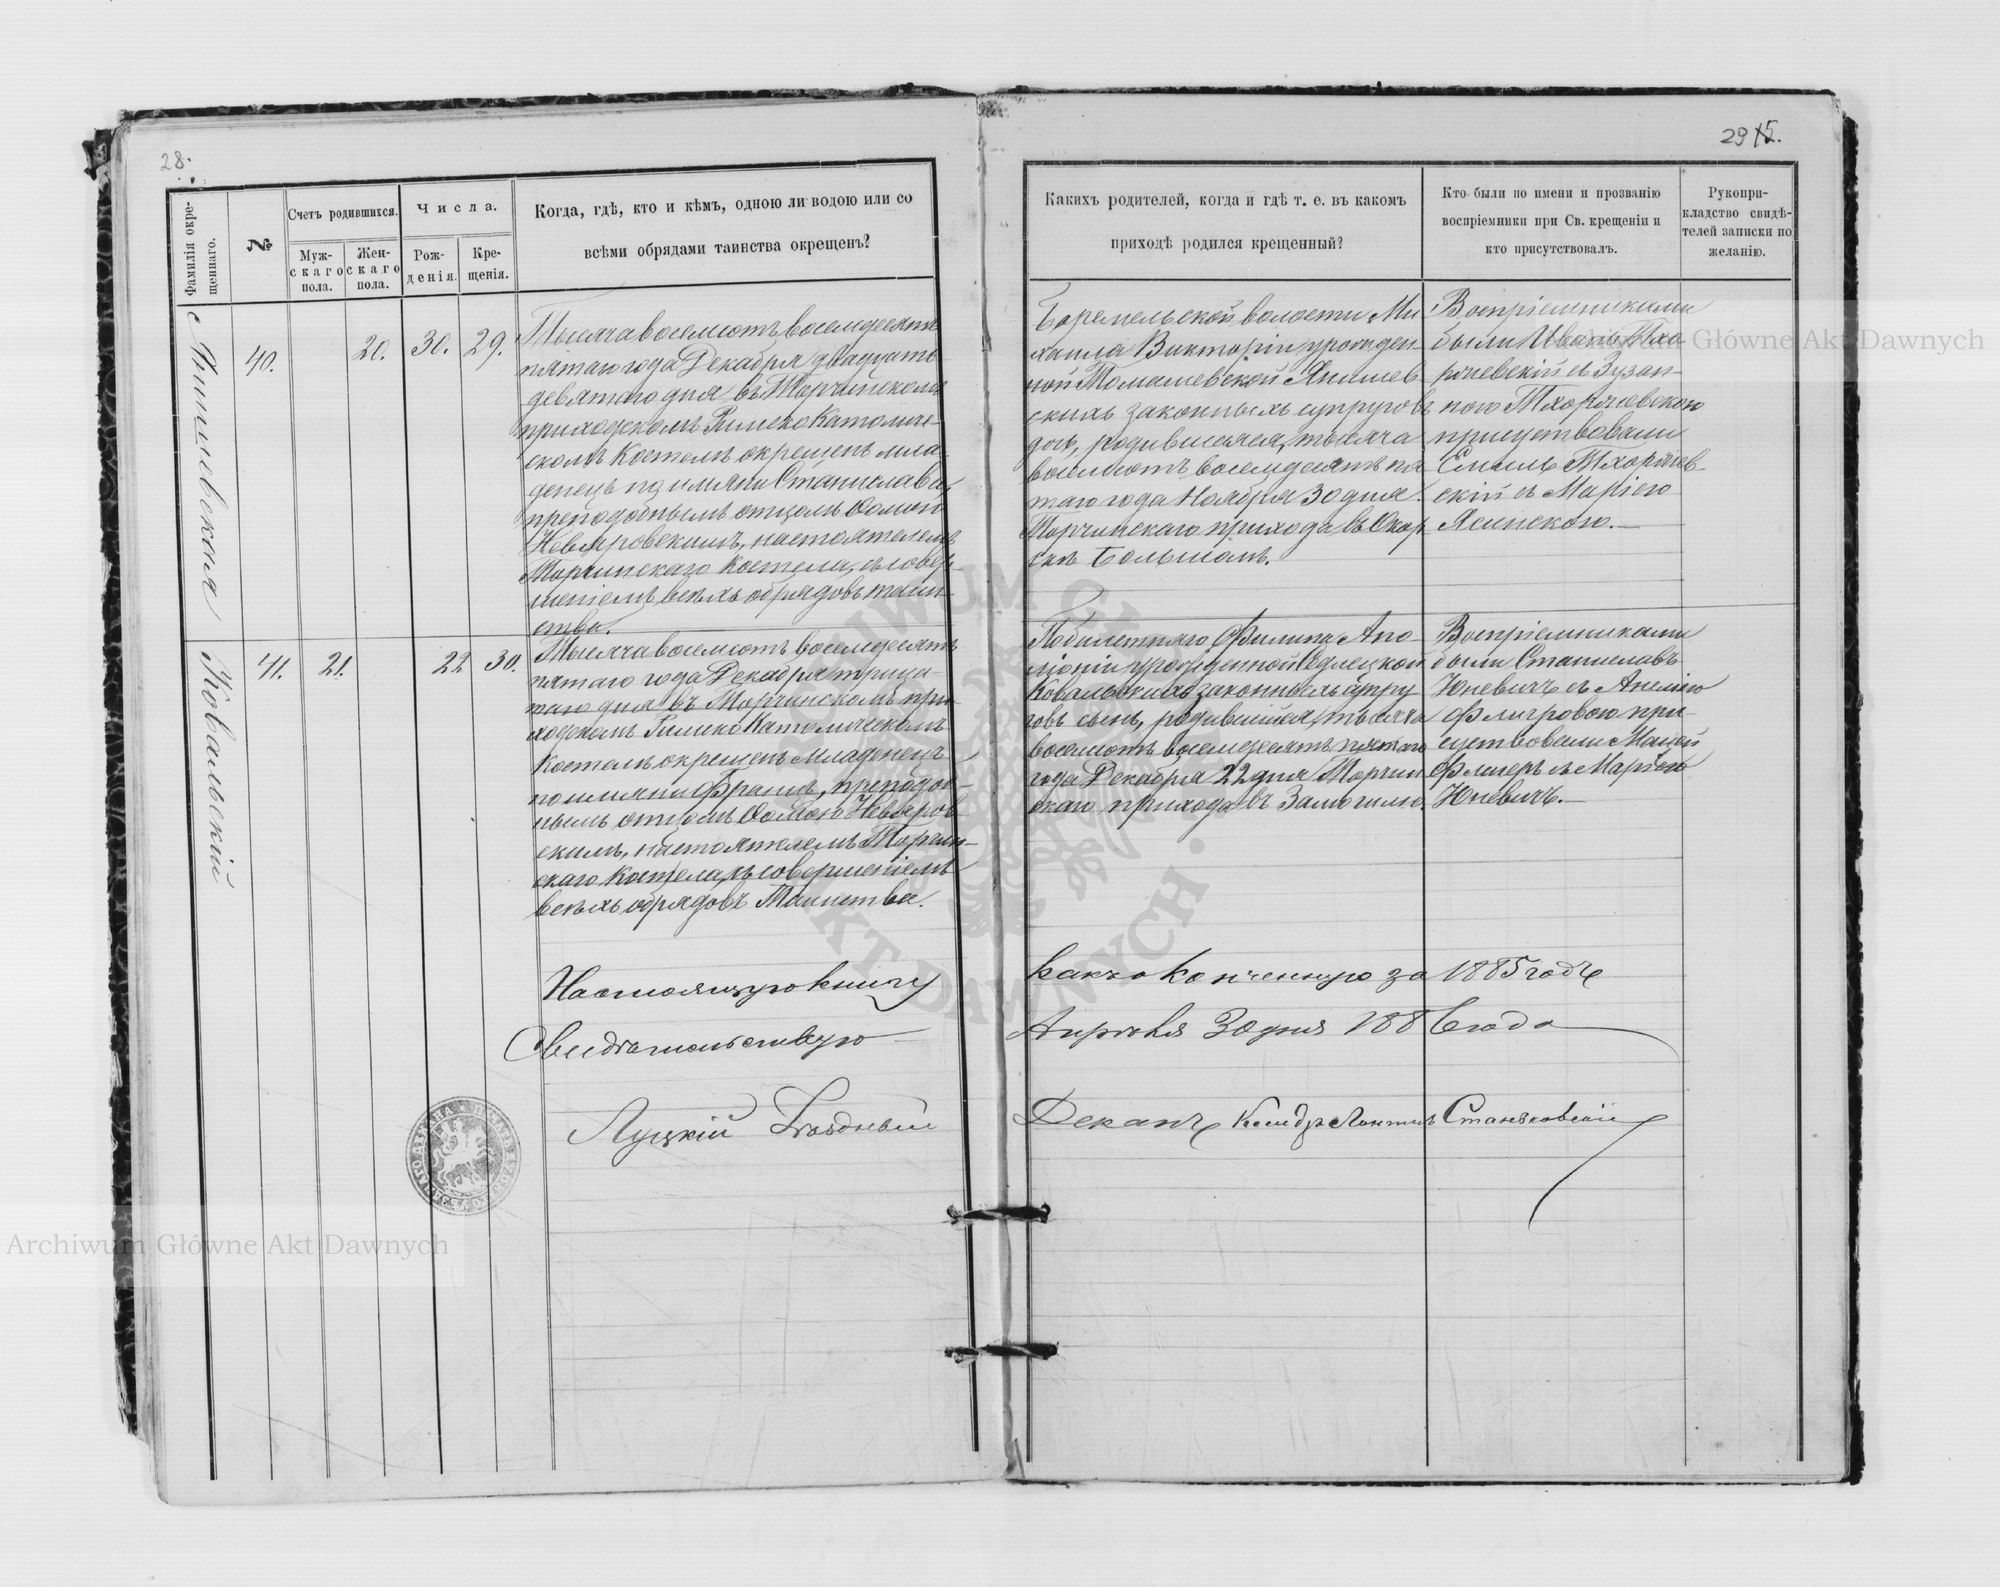 28.
Фамилія окрещеннаго.
№
Счетъ родившихся.
Мужскаго пола.
Женскаго пола.
Числа.
Рожденія.
Крещенія.
Когда, гдѣ, кто и кѣмъ, одною ли водою или со
всѣми обрядами таинства окрещенъ?
Янишевская
40.
20.
30.
29.
Тысяча восемьсотъ восемдесятъ
пятаго года Декабря двадцать
девятаго дня въ Торчинскомъ
приходскомъ Римско Католиче-
скомъ Костелѣ окрещенъ мла-
денецъ по имяни Станислава,
преподобнымъ отцемъ Ѳомою
Невяровскимъ, настоятелемъ
Торчинскаго Костела, съ совер-
шеніемъ всѣхъ обрядовъ таин-
ства.
Ковальскій
41.
21.
22
30.
Тысяча восемьсотъ восемдесятъ
пятаго года Декабря тридца-
таго дня въ Торчинскомъ при-
ходскомъ Римско Католическомъ
Костелѣ окрещенъ младенецъ
по имяни Францъ, преподоб-
нымъ отцемъ Ѳомою Невяров-
скимъ, настоятелемъ Торчин-
скаго Костела, съ совершеніемъ
всѣхъ обрядовъ Таинства.
Настоящую книгу
Свидѣтельствую
Луцкій Уѣздный
29
15.
Какихъ родителей, когда и гдѣ т. е. въ какомъ
приходѣ родился крещенный?
Кто были по имени и прозванію
воспріемники при Св. крещеніи и
кто присутствовалъ.
Рукопри-
кладство свидѣ-
телей записки по
желанію.
Боремельской волости Ми
хаила Викторіи урожден
ной Томашевской Янишев
скихъ законныхъ супруговъ
дочь, родившаяся, тысяча
восемьсотъ восемдесятъ пя
таго года Ноября 30 дня.
Торчинскаго прихода въ Окор
скѣ Большомъ.
Воспріемниками
были Иванъ Тхо-
ржевскій съ Зузан-
ною Тхоржевскою
присутствовали
Емиль Тхоржев-
скій съ Маріею
Ясинскою.
Безилетняго Филипа Апо-
лоніи урожденной Седлецкой
Ковальскихъ законныхъ супру
говъ сынъ, родившійся, тысяча
восемьсотъ восемдесятъ пятаго
года Декабря 22 дня Торчин
скаго прихода въ
Воспріемниками
были Станиславъ
Юневичъ съ Анелею
Флигровою при-
сутствовали Мацей
Флигеръ съ Маріею
Юневичъ.
какъ оконченную за 1885 годъ
Апрѣля 30 дня 1886 года
Деканъ Ксендзъ Станьковскій
Archiwum Główne Akt Dawnych
Archiwum Główne Akt Dawnych